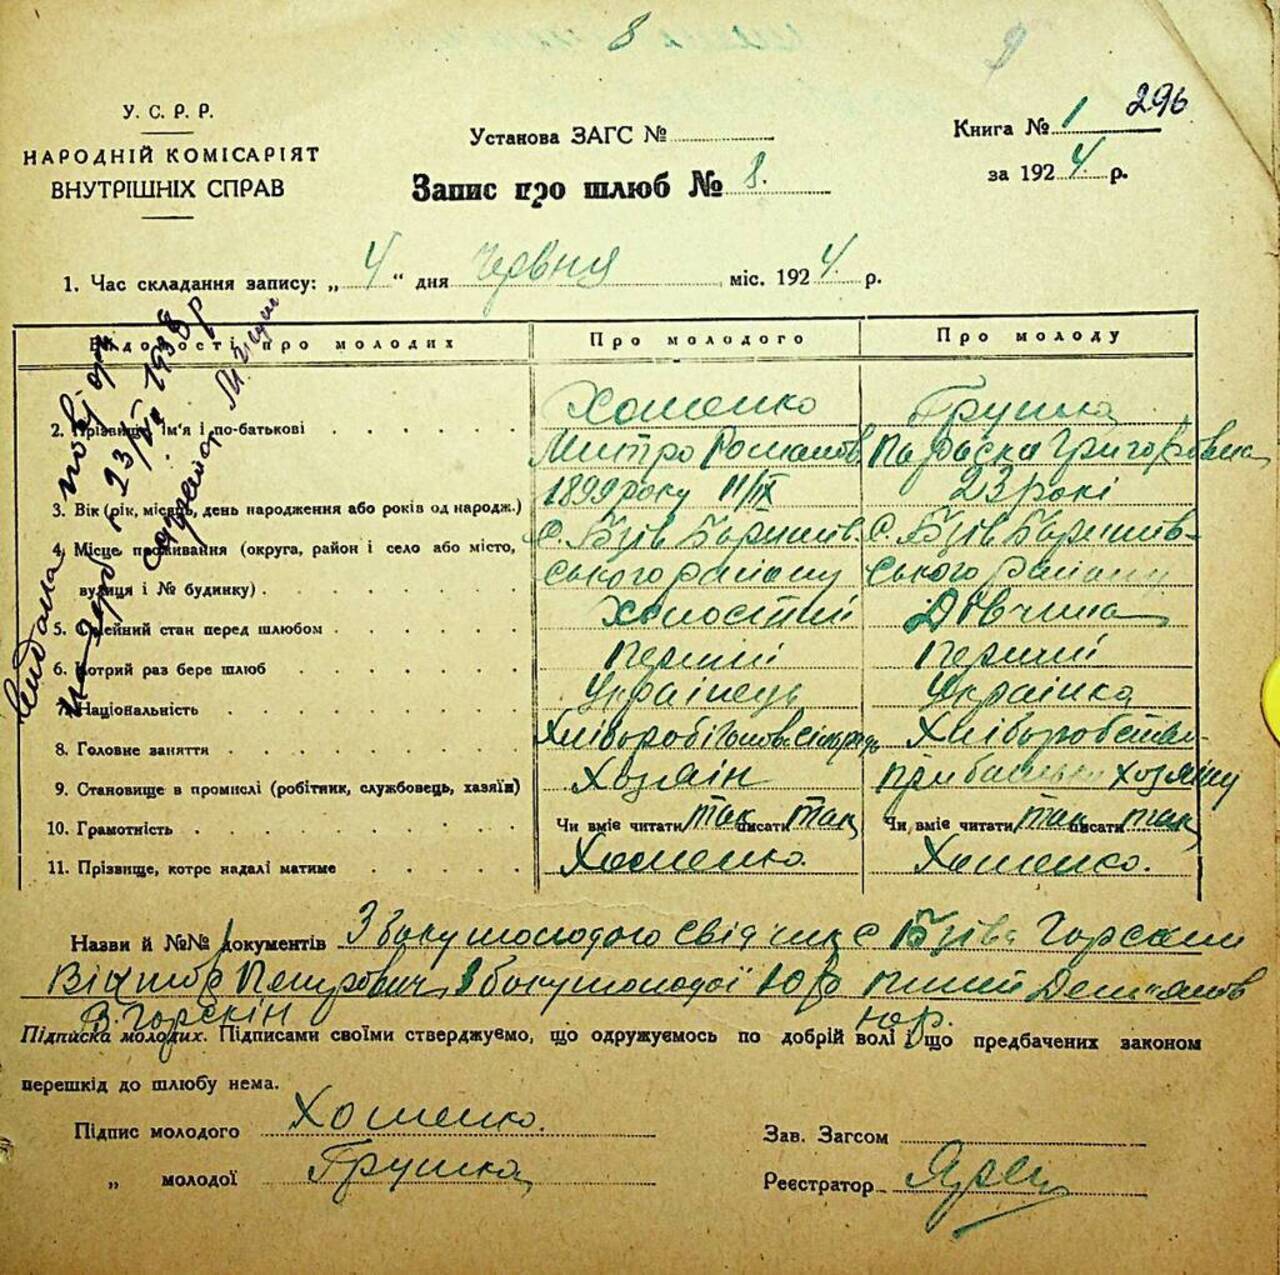 8
9
У. С. Р. Р.
НАРОДНІЙ КОМІСАРІЯТ
ВНУТРІШНІХ СПРАВ
Установа ЗАГС №
Запис про шлюб № 8.
Книга № 1 296
за 1924 р.
1. Час складання запису: „4“ дня червня міс. 1924 р.
Відомості про молодих Про молодого Про молоду
Хоменко Грушка
2. Прізвище, ім'я і по-батькові Митро Романов Параска Григоровна
3. Вік (рік, місяць, день народження або років од народж.) 1899 року 11/IX 23 років
4. Місце проживання (округа, район і село або місто, С. Бзів Баришів- С. Бзів Баришів-
вулиця і № будинку) ського району ського району
5. Сімейний стан перед шлюбом Холостий Дівчина
6. Котрий раз бере шлюб перший перший
7. Національність Українець Українка
8. Головне заняття Хлібороб
9. Становище в промислі (робітник, службовець, хазяїн) Хозяін
10. Грамотність Чи вміє читати так писати так Чи вміє читати так писати так
11. Прізвище, котре надалі матиме Хоменко. Хоменко.
Назви й №№ документів З боку молодого свідчик с Бзіва Горскин
Віктор Петрович, з боку молодої Юр
В. Горскін Юр.
Підписка молодих. Підписами своїми стверджуємо, що одружуємось по добрій волі і що предбачених законом
перешкід до шлюбу нема.
Підпис молодого Хоменко.
„ молодої Грушка
Зав. Загсом
Реєстратор